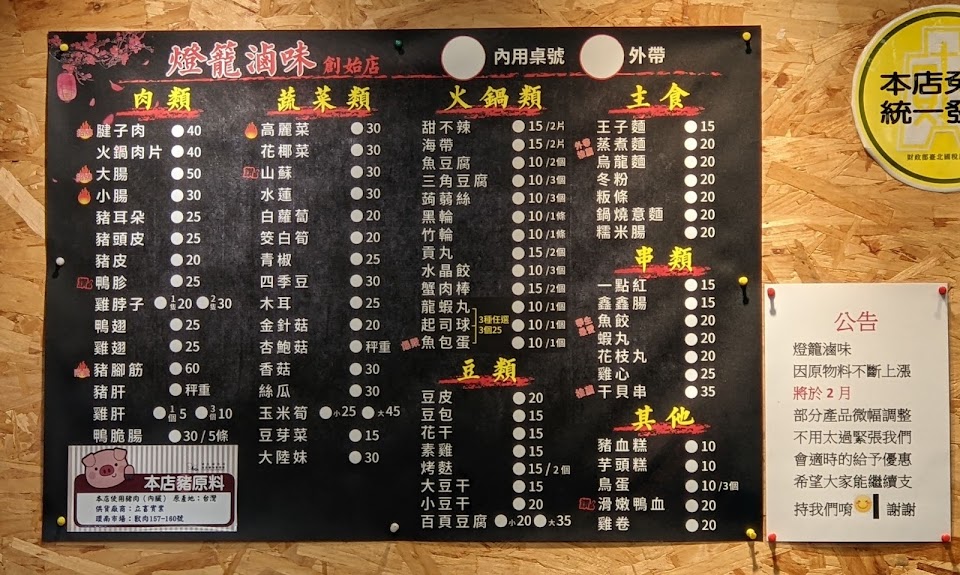 燈籠滷味 創始店
內用桌號
外帶
肉類
腱子肉 40
火鍋肉片 40
大腸 50
小腸 30
豬耳朵 25
豬頭皮 25
豬皮 20
鴨胗 25
雞脖子 1隻20 2隻30
鴨翅 25
雞翅 25
豬腳筋 60
豬肝 秤重
雞肝 1個5 3個10
鴨脆腸 30/5條
蔬菜類
高麗菜 30
花椰菜 30
山蘇 30
水蓮 30
白蘿蔔 20
筊白筍 20
青椒 25
四季豆 30
木耳 25
金針菇 20
杏鮑菇 秤重
香菇 30
絲瓜 30
玉米筍 小25 大45
豆芽菜 15
大陸妹 30
火鍋類
甜不辣 15/2片
海帶 15/2片
魚豆腐 10/2個
三角豆腐 10/3個
蒟蒻絲 10/3個
黑輪 10/1條
竹輪 10/1條
貢丸 15/2個
水晶餃 10/3個
蟹肉棒 15/2個
龍蝦丸 10/1個
起司球 10/1個
魚包蛋 10/1個
3種任選
3個25
豆類
豆皮 20
豆包 15
花干 15
素雞 15
烤麩 15/2個
大豆干 15
小豆干 20
百頁豆腐 小20 大35
主食
王子麵 15
蒸煮麵 20
烏龍麵 20
冬粉 20
粄條 20
鍋燒意麵 20
糯米腸 20
串類
一點紅 15
鑫鑫腸 15
魚餃 20
蝦丸 20
花枝丸 20
雞心 25
干貝串 35
其他
豬血糕 10
芋頭糕 10
鳥蛋 10/3個
滑嫩鴨血 20
雞卷 20
本店豬原料
本店使用豬肉(內臟) 原產地:台灣
供貨廠商:立富實業
環南市場:獸肉157-160號
本店免
統一發
公告
燈籠滷味
因原物料不斷上漲
將於 2 月
部分產品微幅調整
不用太過緊張我們
會適時的給予優惠
希望大家能繼續支
持我們唷 謝謝